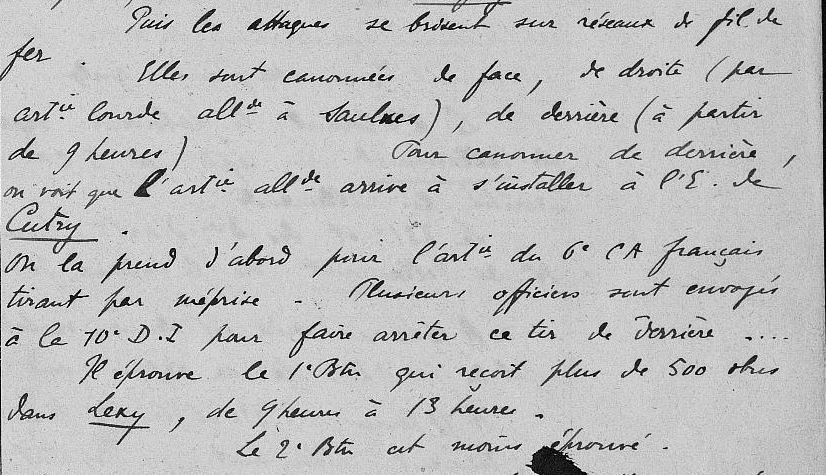 Puis les attaques se brisent sur réseaux de fil de
fer. Elles sont canonnées de face, de droite (par
artie lourde allde à Saulnes), de derrière (à partir
de 9 heures) Pour canonner de derrière,
on voit que l'artie allde arrive à s'installer à l'E. de
Cutry.
On la prend d'abord pour l'artie du 6e CA français
tirant par méprise - Plusieurs officiers sont envoyés
à la 40e D.I pour faire arrêter ce tir de derrière ....
Il éprouve le 1e Btn qui reçoit plus de 500 obus
dans Lexy, de 9 heures à 13 heures.
Le 2e Btn est moins éprouvé.